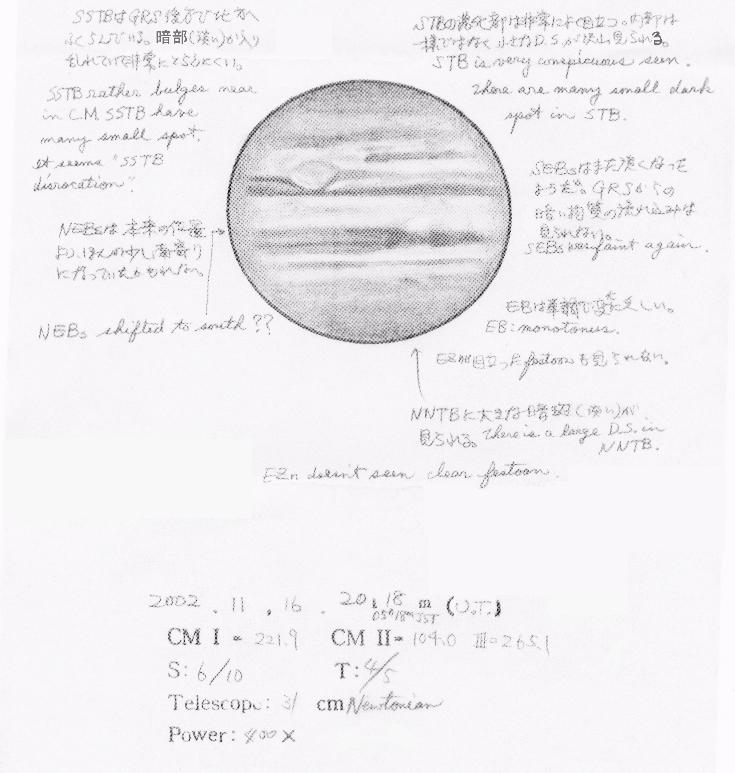 SSTBはGRS後方で北方へ
ふくらんでいる。暗部(淡い)が入り
乱れていて非常にとらえにくい。
SSTB rather bulges near
in C.M. SSTB have
many small spot.
It seems "SSTB
disrocation".
STBの濃化部は非常によく目立つ。内部は
一様ではなく小さなD.S.が沢山見られる。
STB is very conspicuous seen.
There are many small dark
spot in STB.
SEBsはまた淡くなった
ようだ。GRSからの
暗い物質の流れ込みは
見られない。
SEBs was faint again.
NEBsは本来の位置
よりほんの少し南寄り
になっていたかもしれない。
NEBs shifted to south??
EBは単調で変化乏しい。
EB: monotonus.
EZnに目立ったfestoonも見られない。
NNTBに大きな暗斑(淡い)が
見られる。There is a large D.S. in
NNTB.
EZn doesn't seen clear festoon.
2002 . 11 . 16 . 20 h 18 m (U.T.)
05h18m JST
CM I = 221.9 CM II= 104.0 III=265.1
S: 6/10 T: 4/5
Telescope: 31 cm Newtonian
Power: 400 X